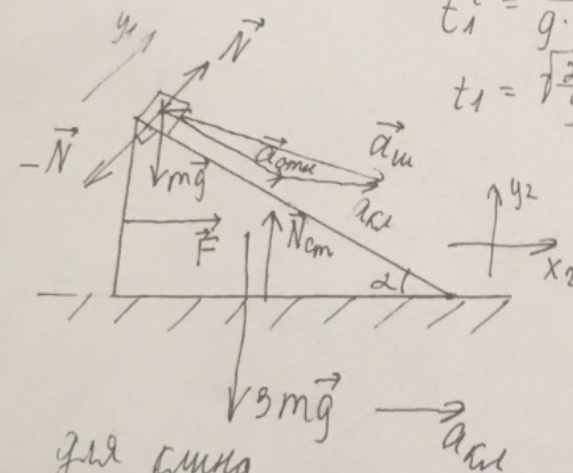 t₁² = g.
t₁ = √2
y₁
N⃗
-N⃗
mg⃗
a⃗отн
a⃗ш
aкл
F⃗
N⃗ст
α
y₂
x₂
3mg⃗
a⃗кл
для клина